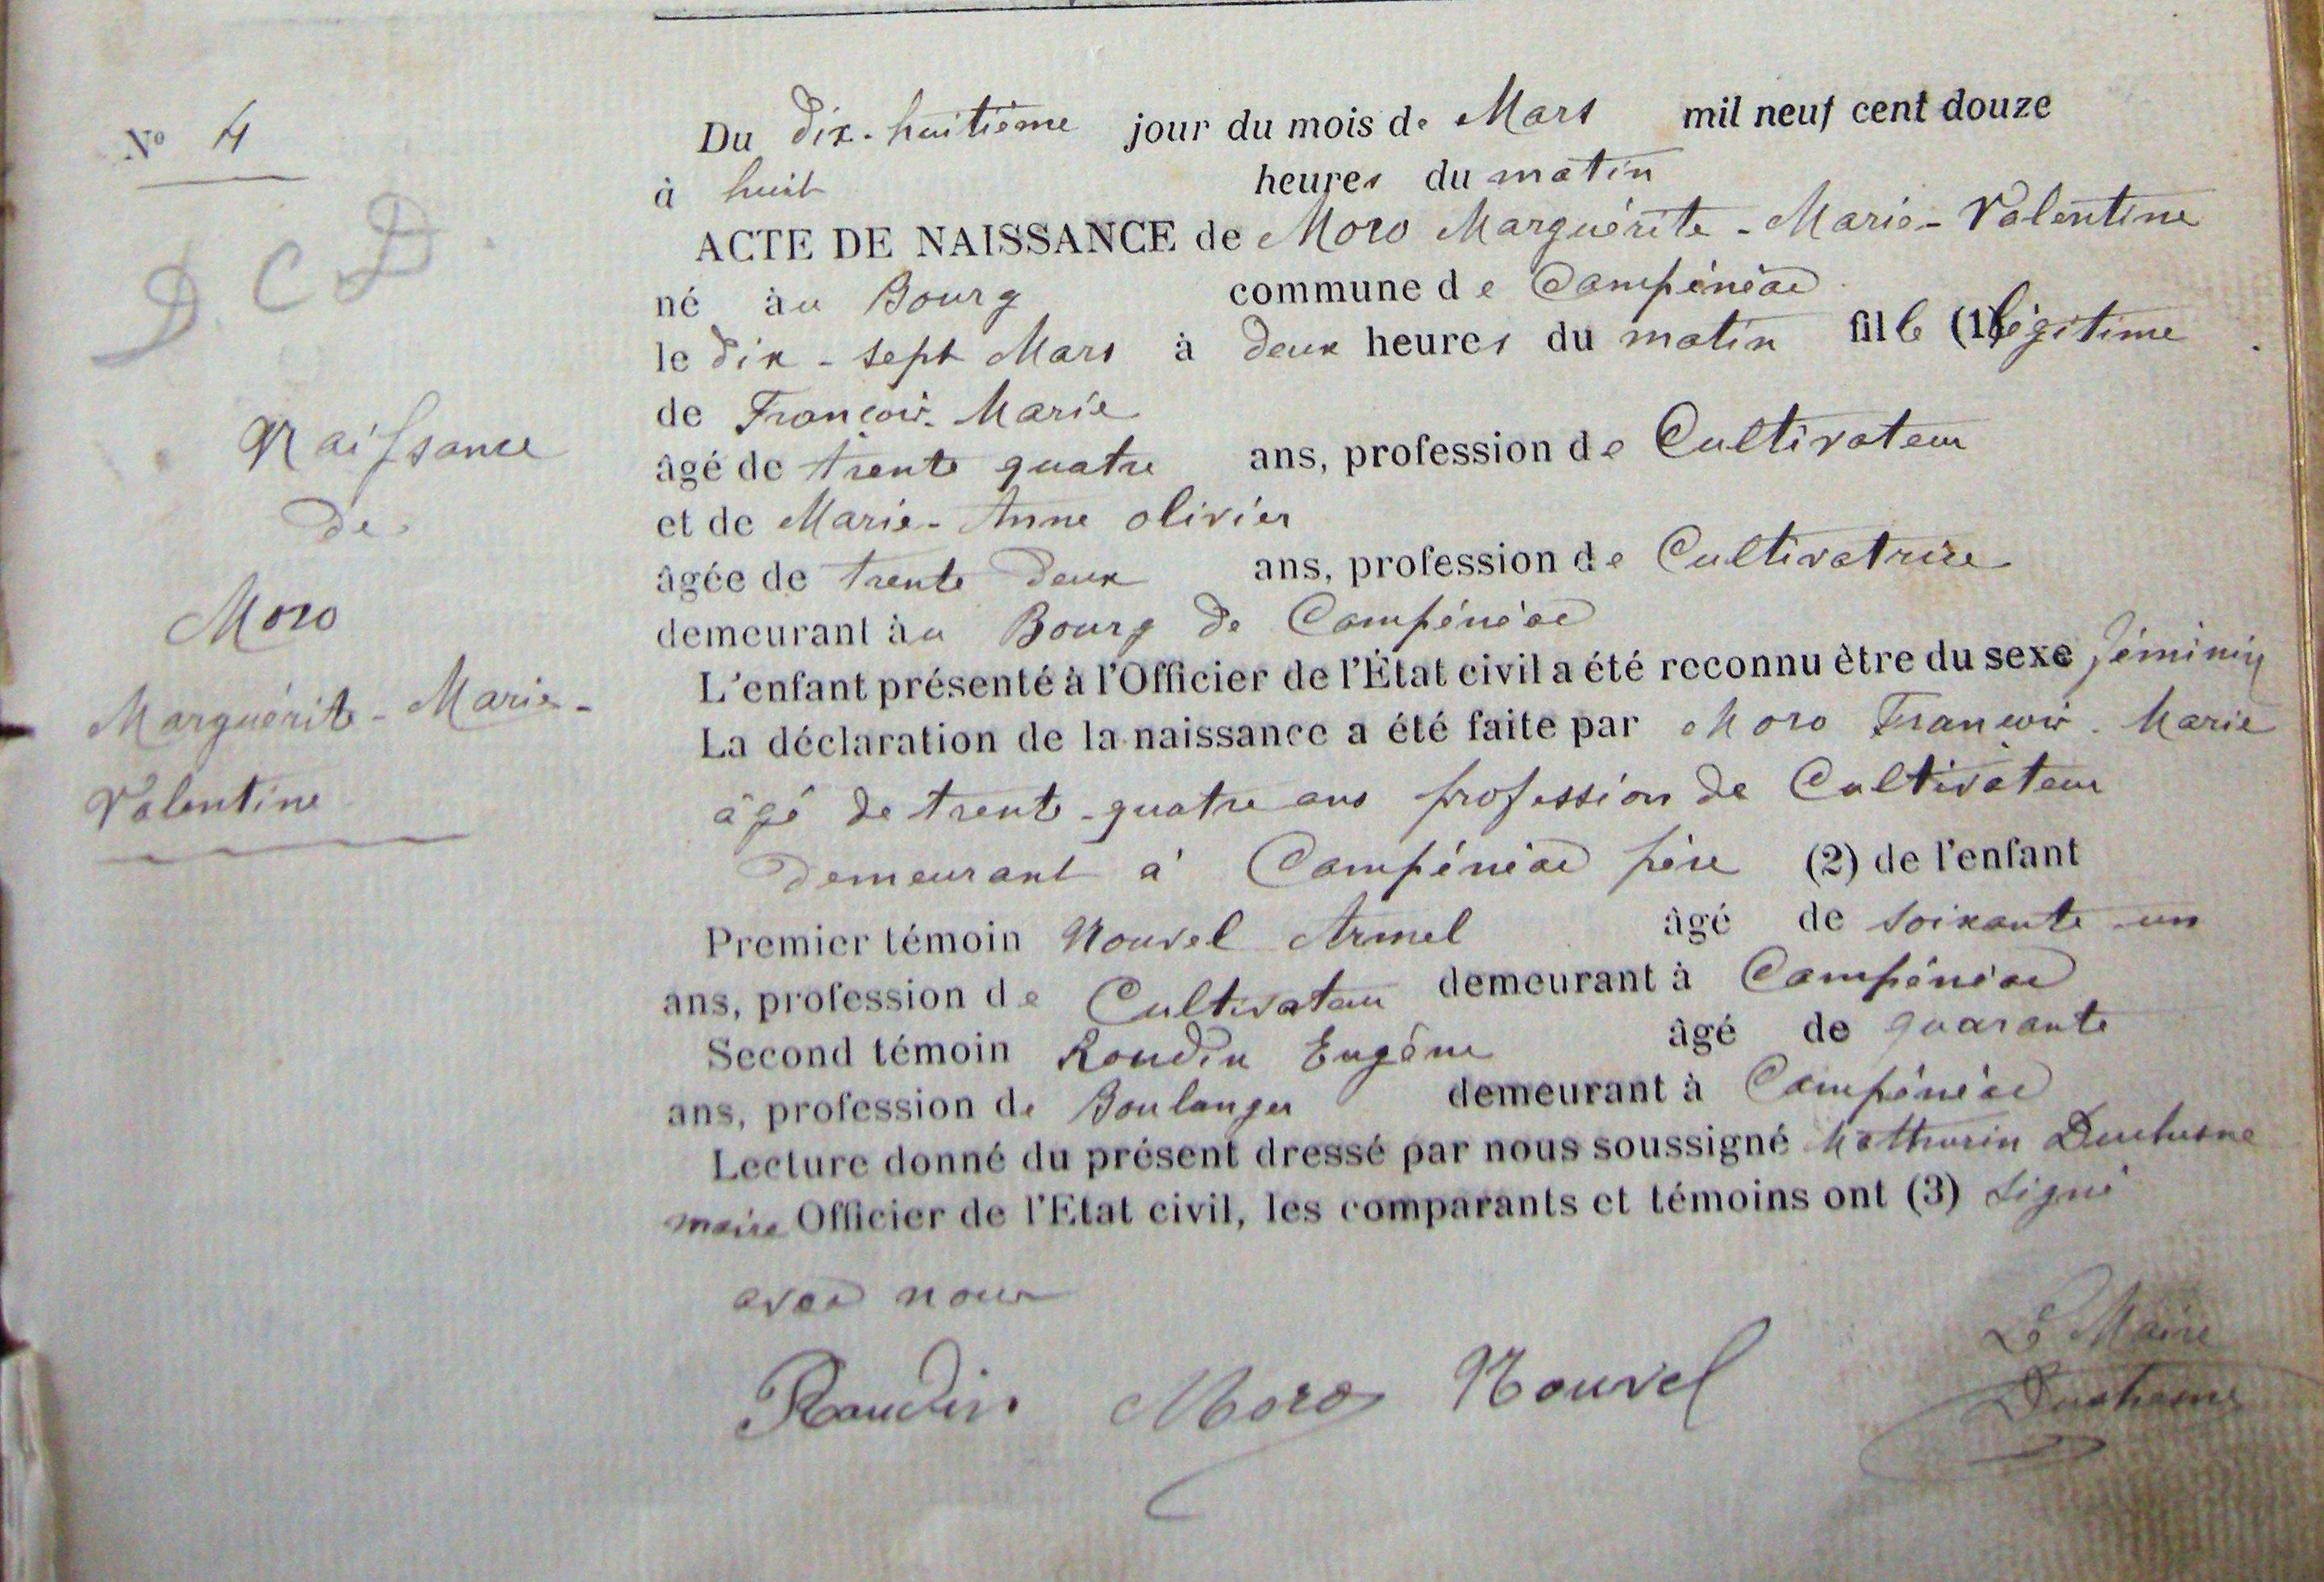 N° 4
D C D
Naissance
de
Moro
Marguérite - Marie -
Valentine
Du dix-huitième jour du mois de Mars mil neuf cent douze
à huit heures du matin
ACTE DE NAISSANCE de Moro Marguérite - Marie - Valentine
né àu Bourg commune de Campénéac
le dix - sept Mars à deux heures du matin fille (1) légitime
de François - Marie
âgé de trente quatre ans, profession de Cultivateur
et de Marie - Anne olivier
âgée de trente deux ans, profession de Cultivatrice
demeurant àu Bourg de Campénéac
L'enfant présenté à l'Officier de l'État civil a été reconnu être du sexe féminin
La déclaration de la naissance a été faite par Moro François - Marie
âgé de trente - quatre ans profession de Cultivateur
demeurant à Campénéac père (2) de l'enfant
Premier témoin Nouvel Armel âgé de soixante - un
ans, profession de Cultivateur demeurant à Campénéac
Second témoin Roudin Eugène âgé de quarante
ans, profession de Boulanger demeurant à Campénéac
Lecture donné du présent dressé par nous soussigné Mathurin Duchesne
maire Officier de l'Etat civil, les comparants et témoins ont (3) signé
avec nous
Roudin Moro Nouvel
Le Maire
Duchesne